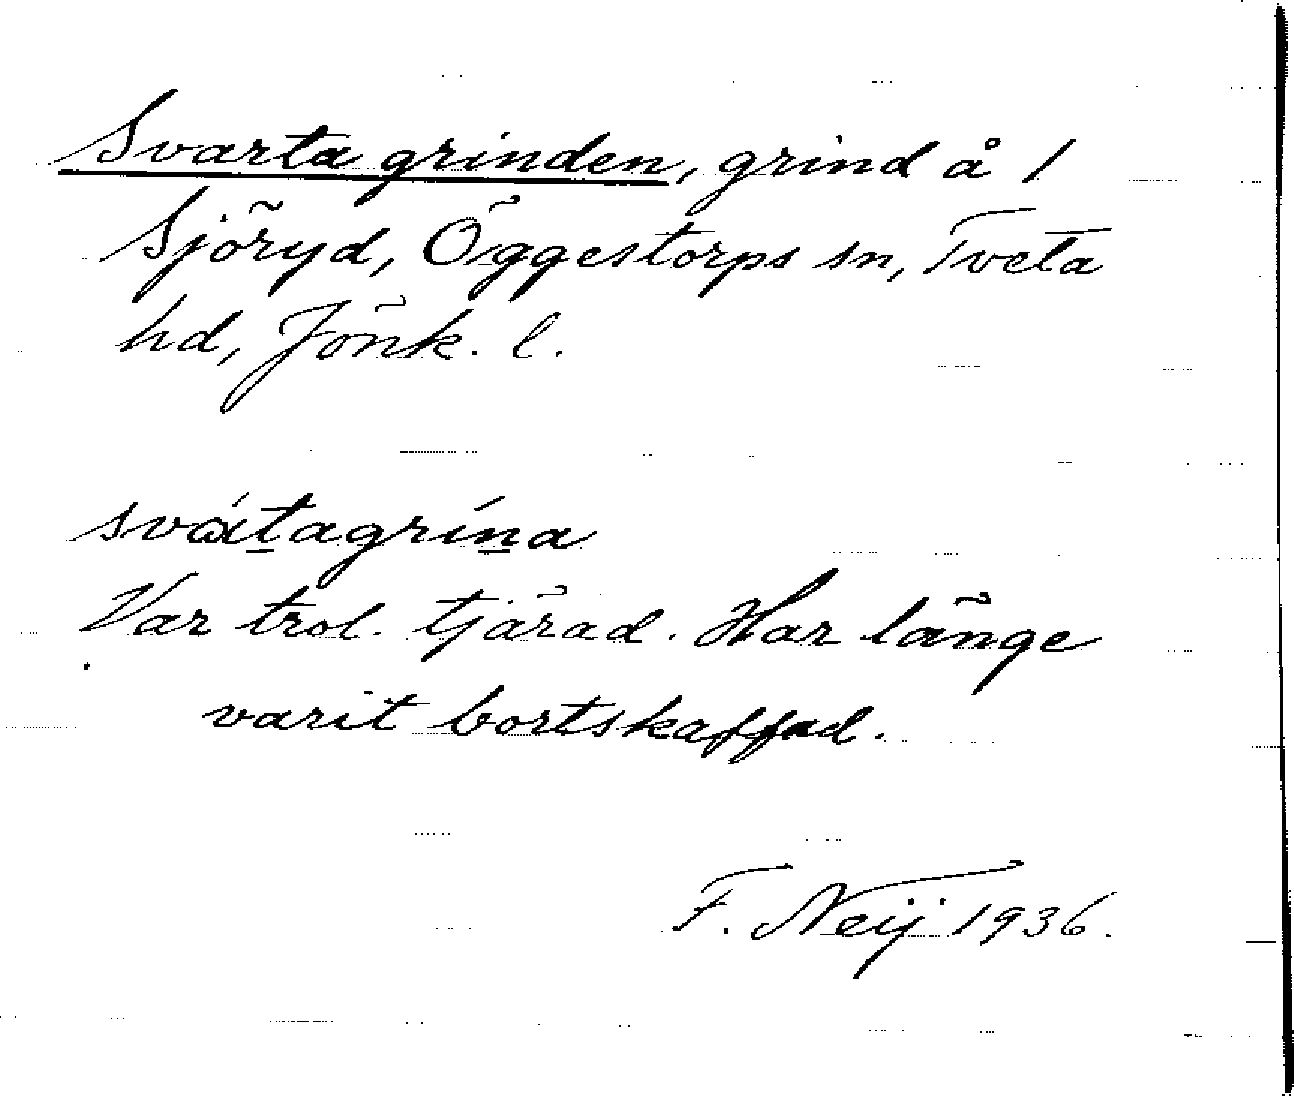 Svarta grinden, grind å 1
Sjöryd, Öggestorps sn, Tveta
hd, Jönk. l.
sváṯagríṉa
Var trol. tjärad. Har länge
varit bortskaffad.
F. Neij 1936.